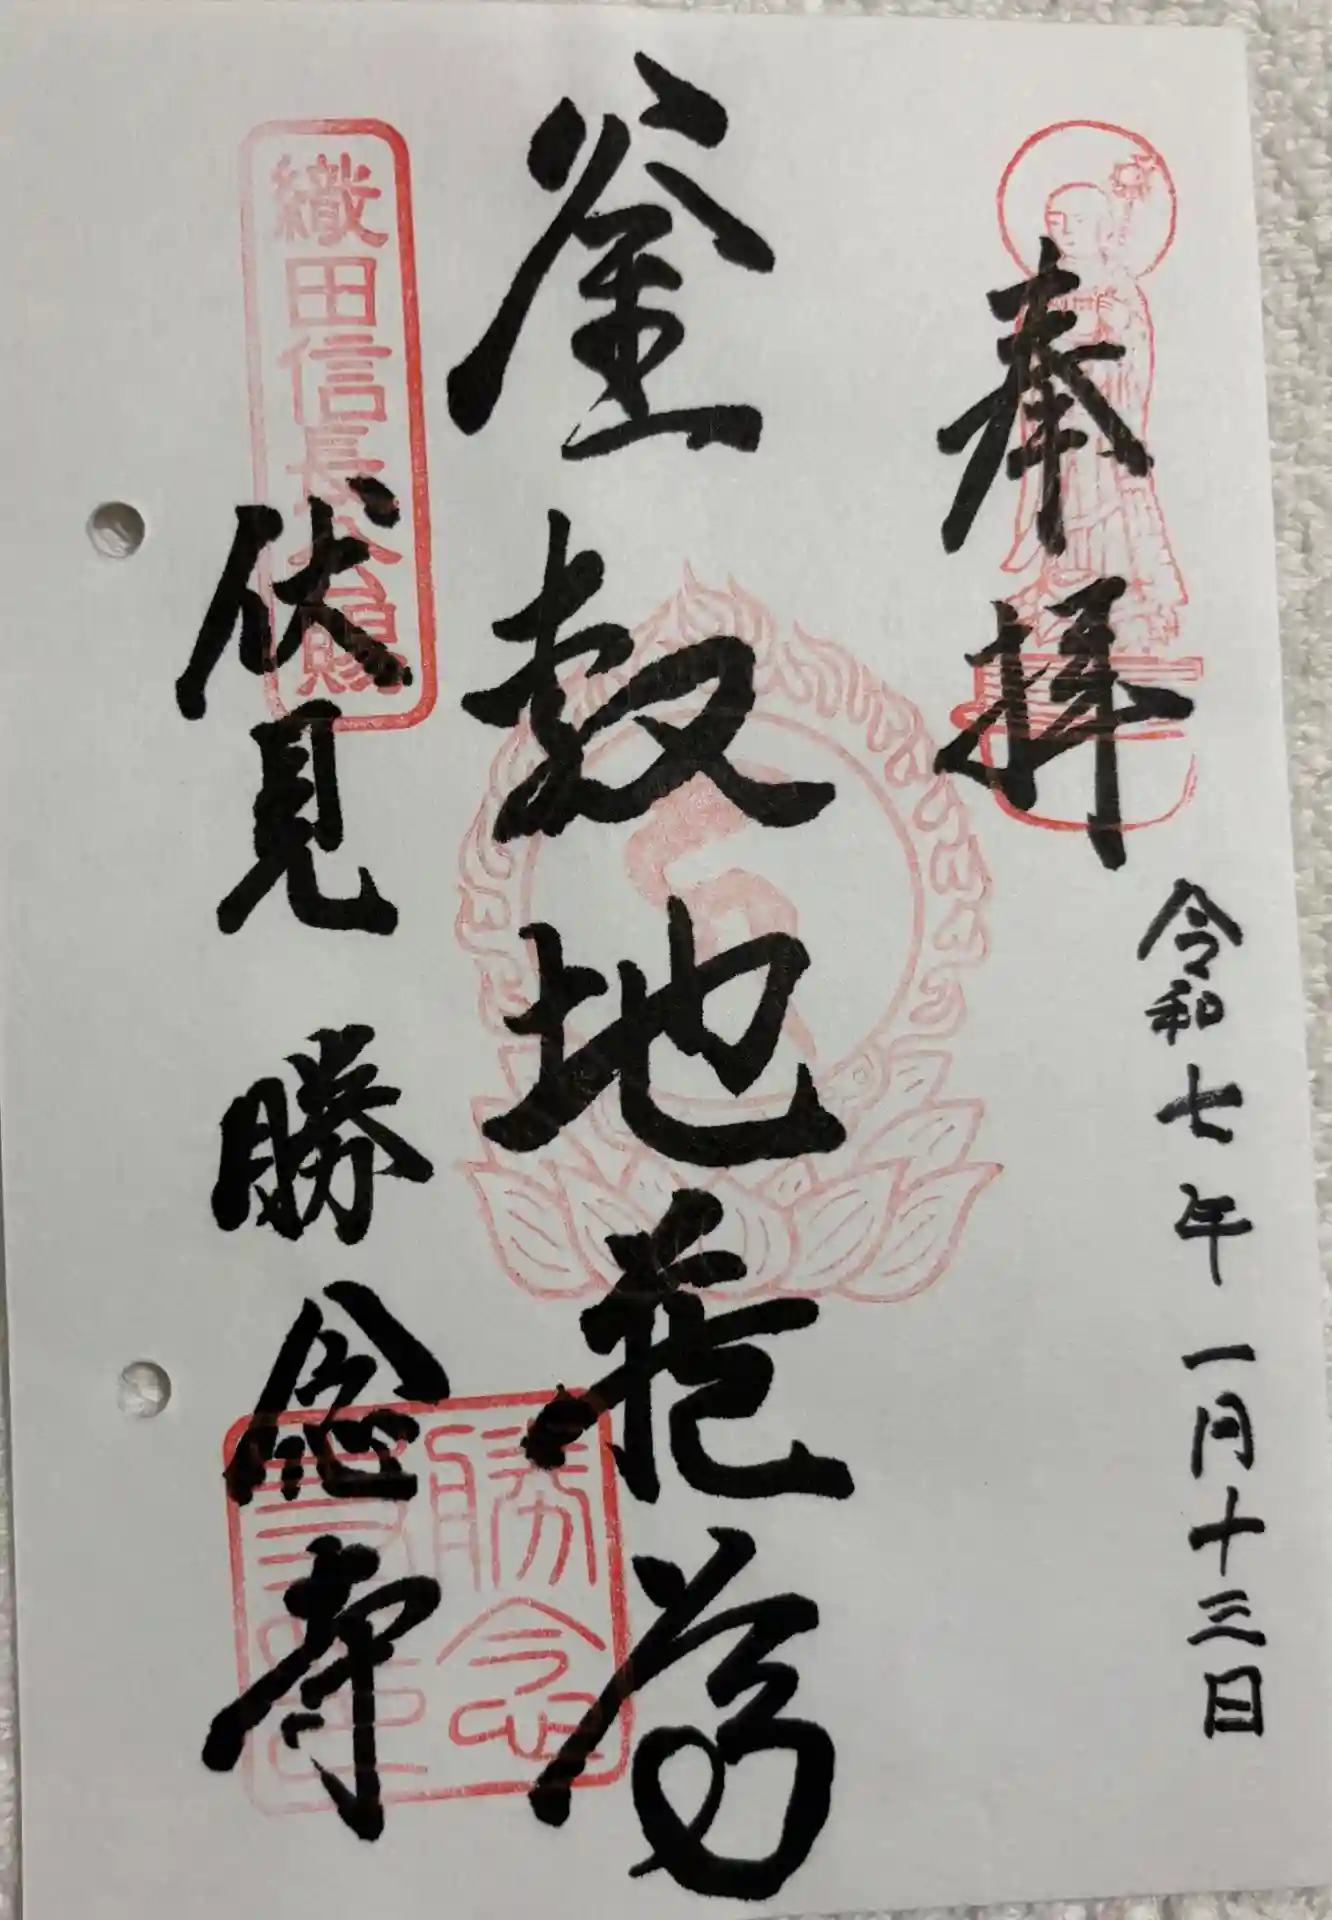 奉拝
令和七年一月十三日
釜敷地蔵尊
伏見 勝念寺
織田信長公賜
勝念